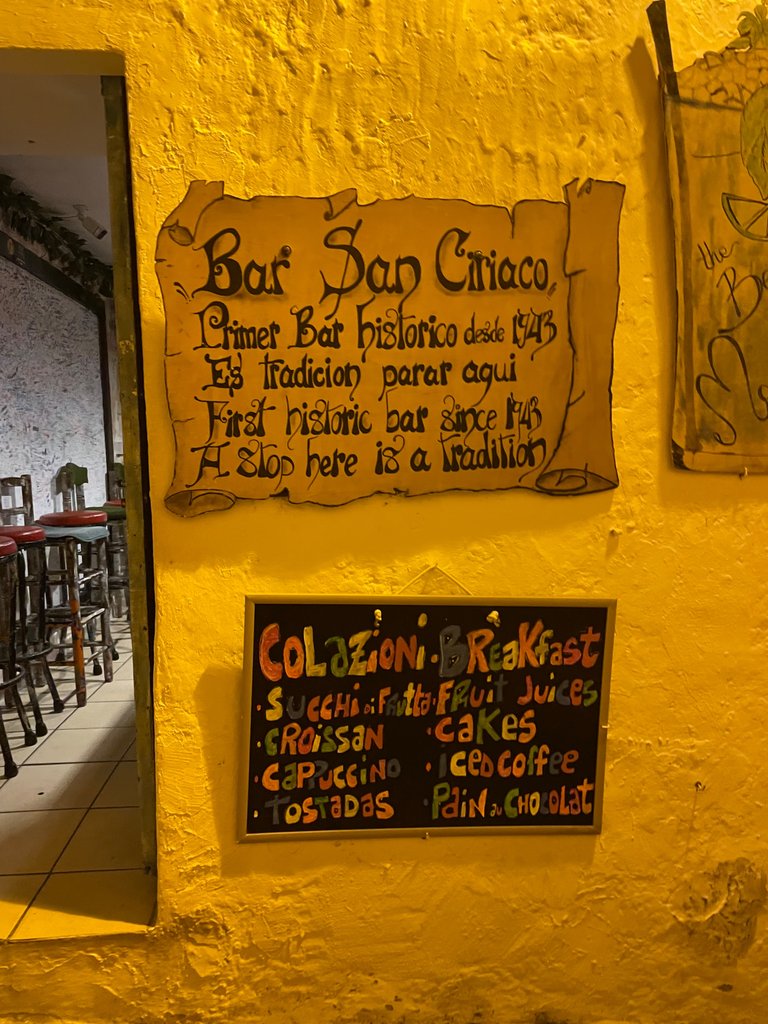 Bar San Ciriaco
Primer Bar historico desde 1943
Es tradicion parar aqui
First historic bar since 1943
A stop here is a tradition
the
COLAZiONi · BREAKfast
· SUCCHi Di FRUttA · FRUiT JUiCES
· CROiSSAN · CAKES
· CAPPUCCiNO · iCED COFFEE
· TOSTADAS · PAiN AU CHOCOLAT